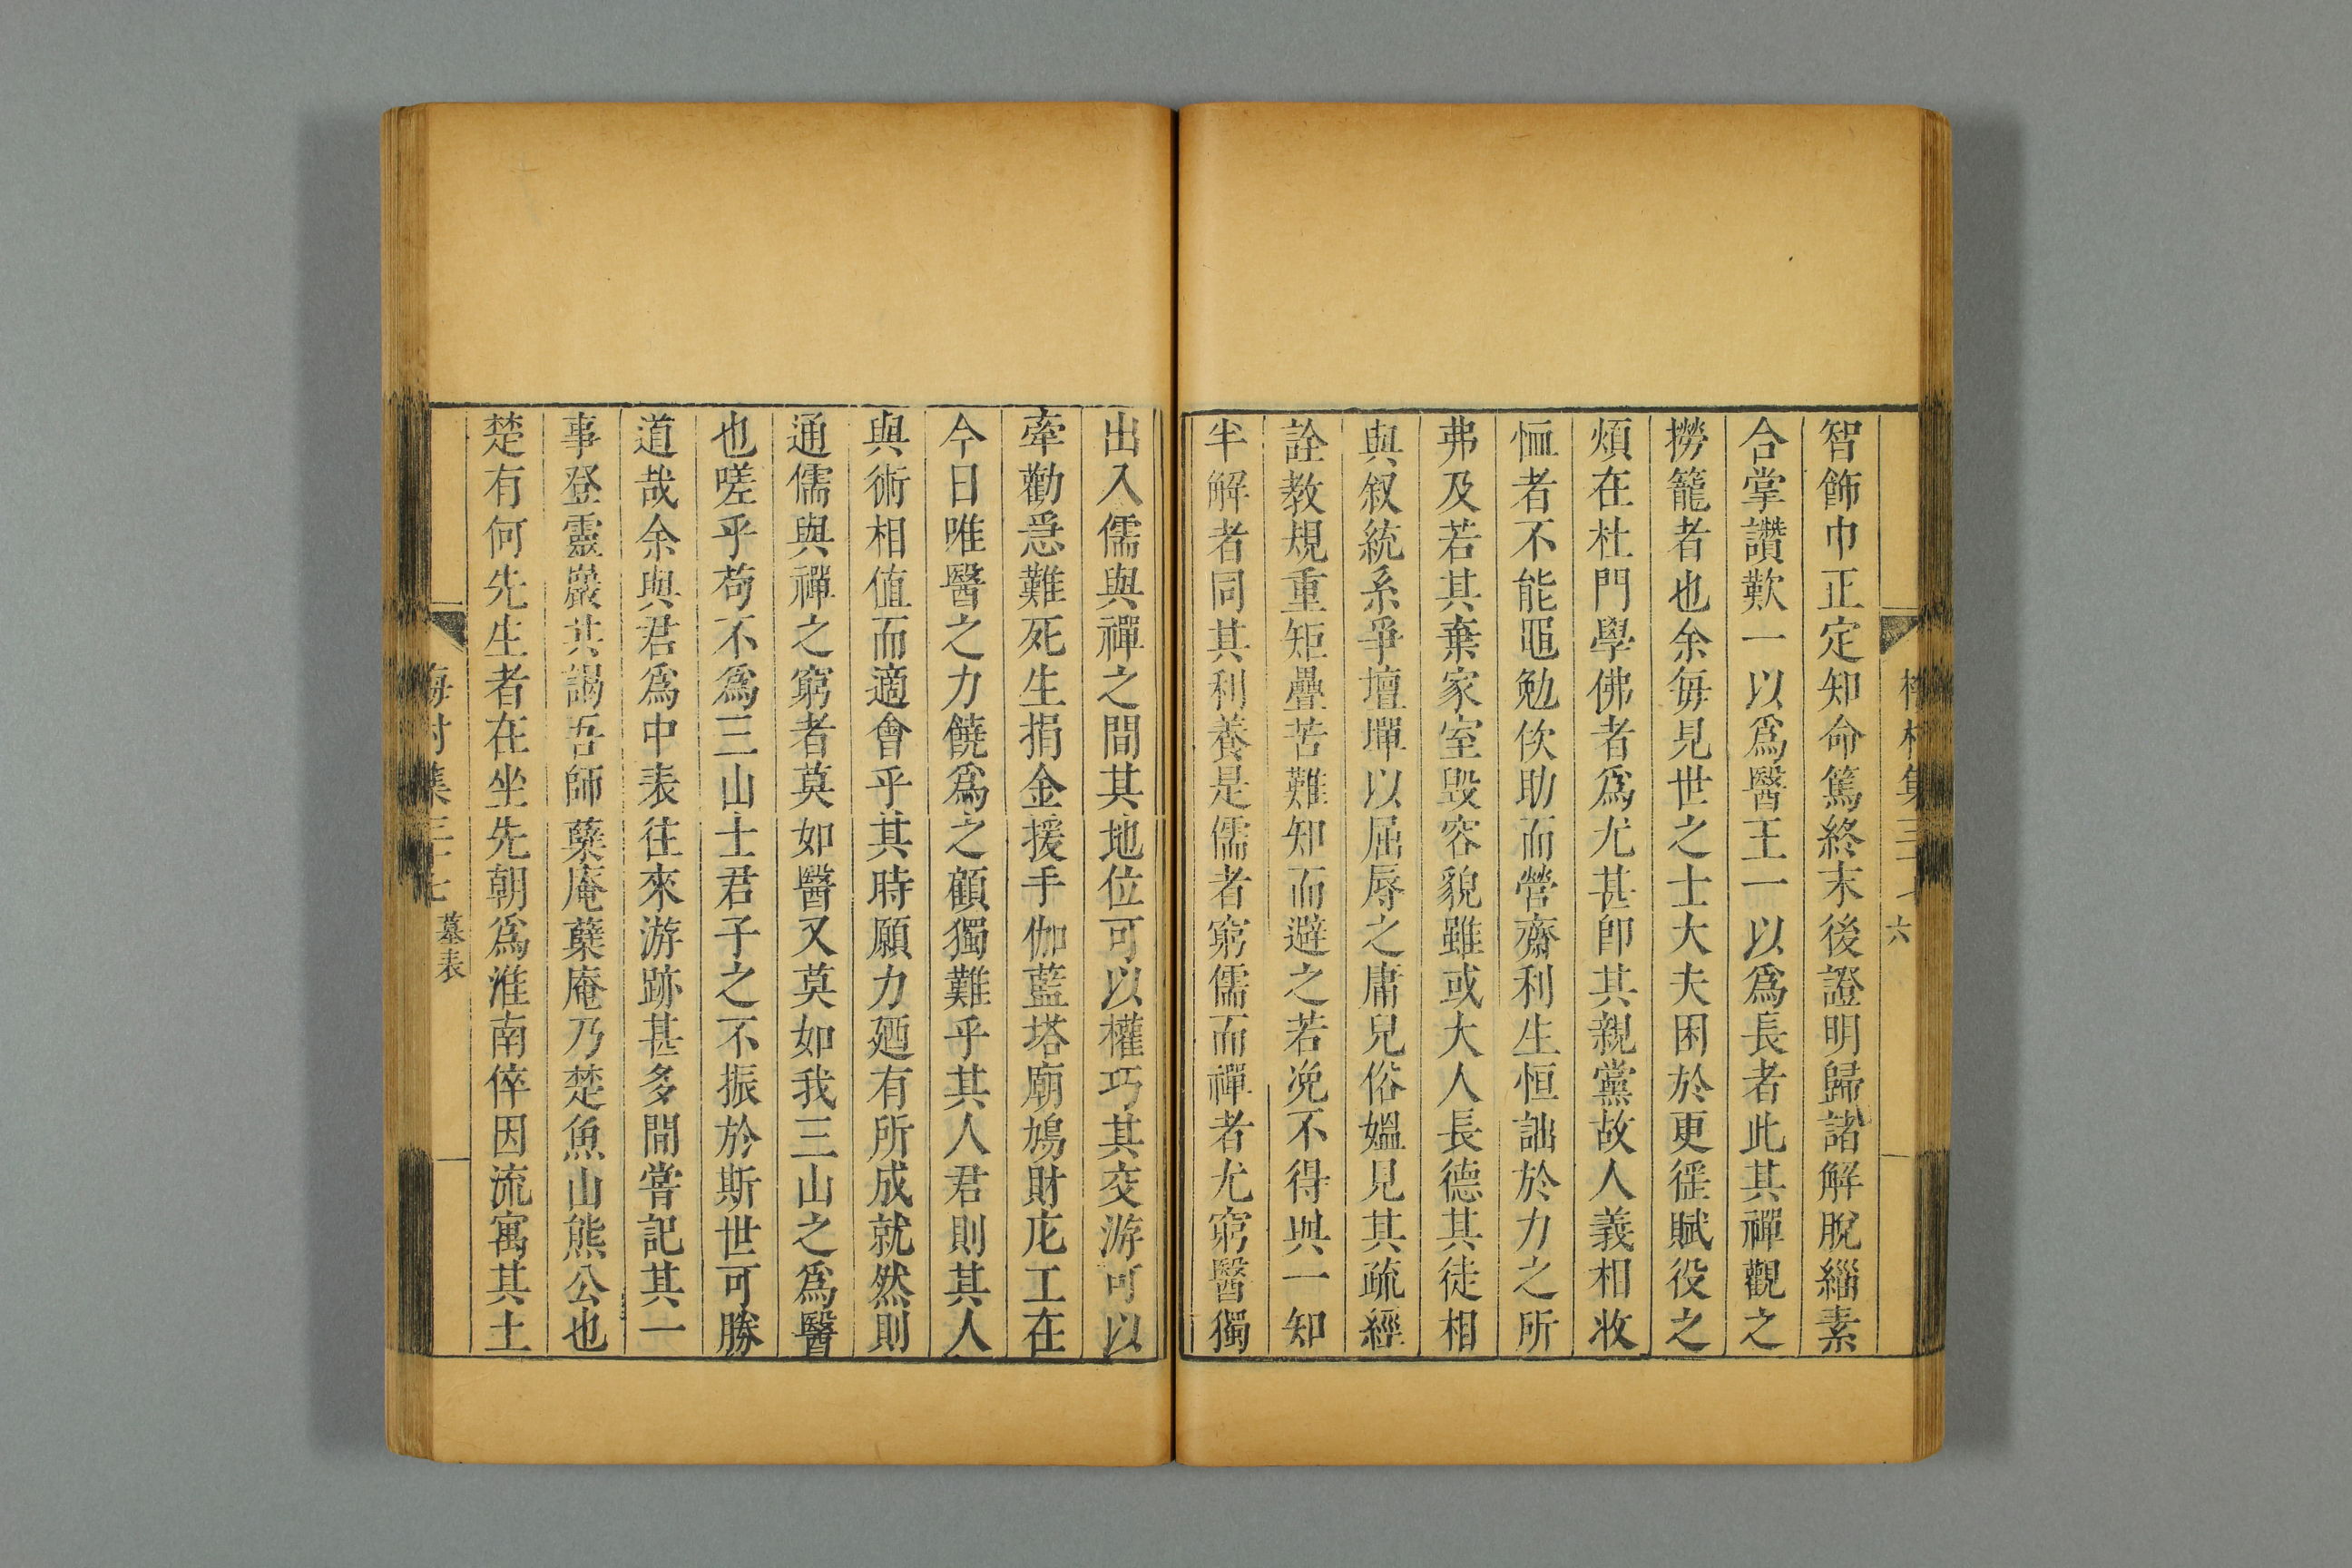 智飾巾正定知命篤終末後證明歸諸解脫緇素
合掌讚歎一以爲醫王一以爲長者此其禪觀之
撈籠者也余每見世之士大夫困於更徭賦役之
煩在杜門學佛者爲尤甚卽其親黨故人義相收
恤者不能黽勉佽助而營齋利生恒詘於力之所
弗及若其棄家室毁容貌雖或大人長德其徒相
與叙統系爭壇墠以屈辱之庸兒俗媼見其疏經
詮教規重矩疊苦難知而避之若浼不得與一知
半解者同其利養是儒者窮儒而禪者尤窮醫獨
出入儒與禪之間其地位可以權巧其交游可以
牽勸急難死生捐金援手伽藍塔廟鳩財庀工在
今日唯醫之力饒爲之顧獨難乎其人君則其人
與術相值而適會乎其時願力廼有所成就然則
通儒與禪之窮者莫如醫又莫如我三山之爲醫
也嗟乎苟不爲三山士君子之不振於斯世可勝
道哉余與君爲中表往來游跡甚多間嘗記其一
事登靈巖共謁吾師蘗庵蘗庵乃楚魚山熊公也
楚有何先生者在坐先朝爲淮南倅因流寓其土
梅村集三七 墓表